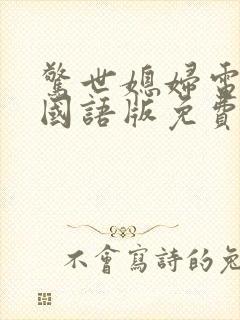 驚世媳婦電
國語版免費
不會寫詩的兔